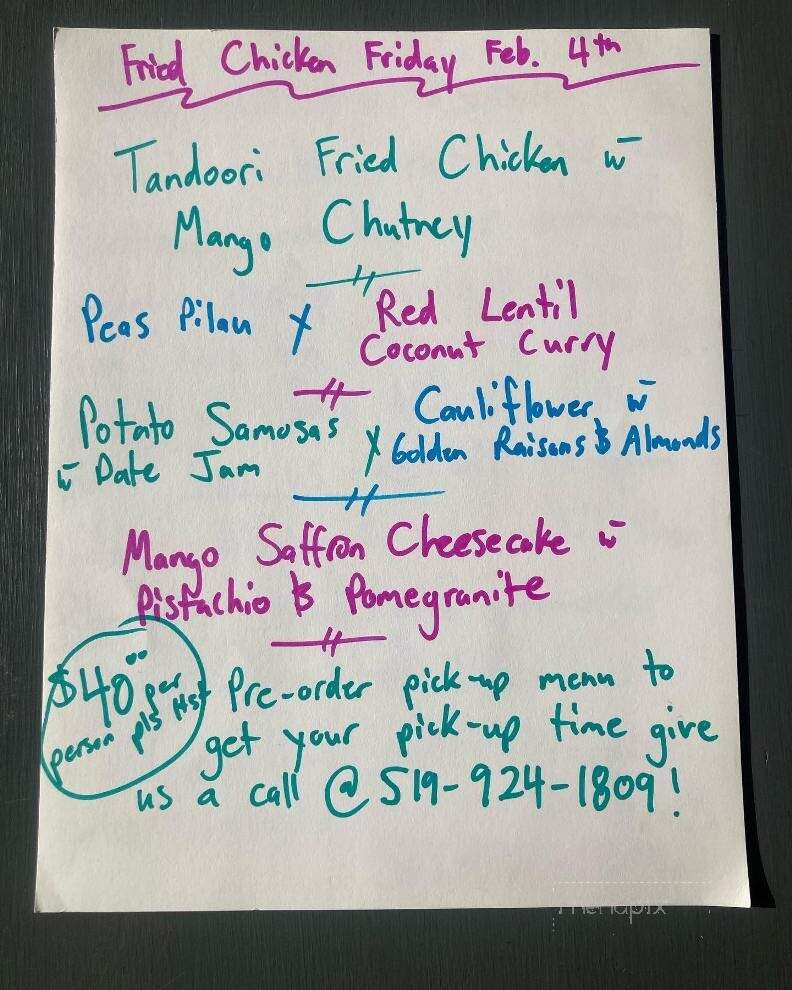 Fried Chicken Friday Feb. 4th
Tandoori Fried Chicken w
Mango Chutney
Peas Pilau
Red Lentil
Coconut Curry
Potato Samosas
w Date Jam
Cauliflower w
Golden Raisons & Almonds
Mango Saffron Cheesecake w
Pistachio & Pomegranite
$40.00 per
person pls Hst
Pre-order pick-up menu to
get your pick-up time give
us a call @ 519-924-1809!
menupix